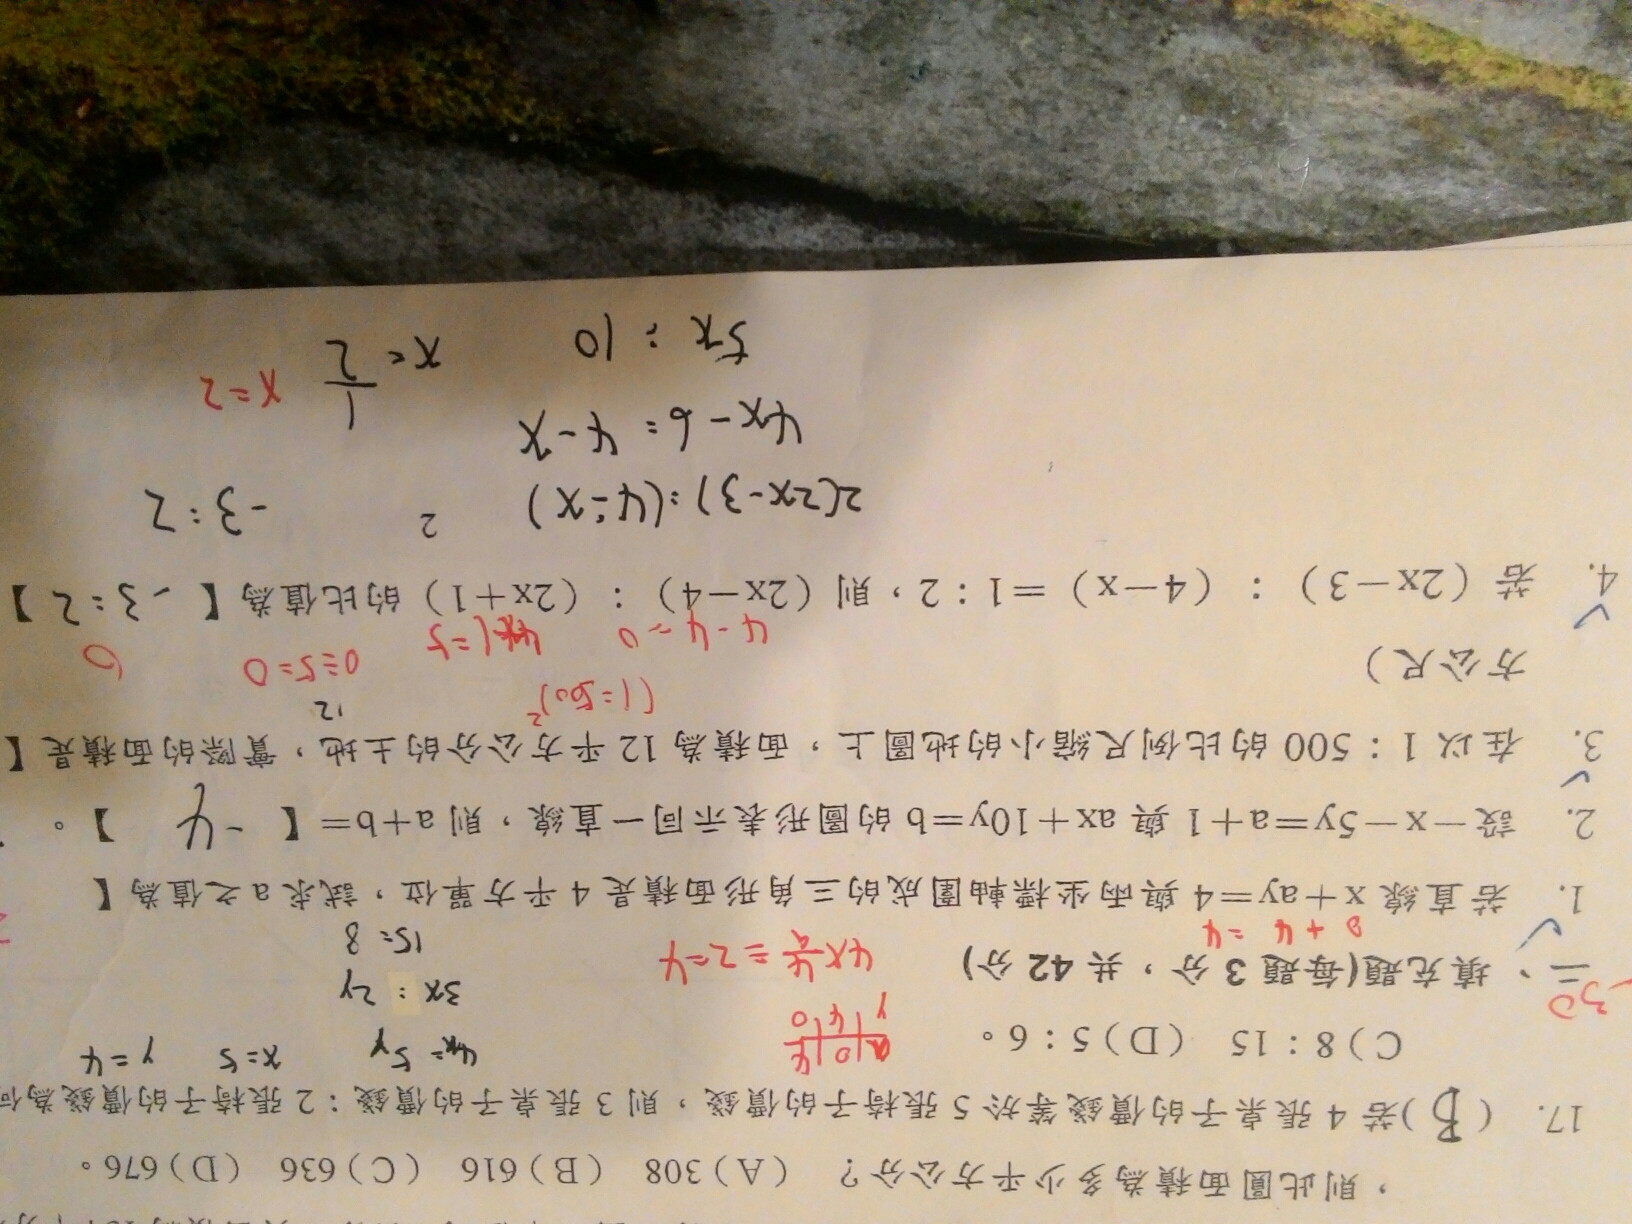 ，則此圓面積為多少平方公分？ (A)308 (B)616 (C)636 (D)676。
17. ( B )若4張桌子的價錢等於5張椅子的價錢，則3張桌子的價錢：2張椅子的價錢為何
C)8：15 (D)5：6。
4x=5y x=5 y=4
3x：2y
15=8
二、填充題(每題3分，共42分)
0+4=4
1. 若直線x+ay=4與兩坐標軸圍成的三角形面積是4平方單位，試求a之值為【
2. 設－x－5y=a+1與ax+10y=b的圖形表示同一直線，則a+b=【 -4 】。
3. 在以1：500的比例尺縮小的地圖上，面積為12平方公分的土地，實際的面積是【
12
方公尺)
(1=500)²
0÷5=0
0
4-4=0
4. 若(2x－3)：(4－x)=1：2，則(2x－4)：(2x+1)的比值為【 -3:2 】
2(2x-3)=(4-x) 2 -3:2
4x-6=4-x
5x=10 x=1/2 x=2